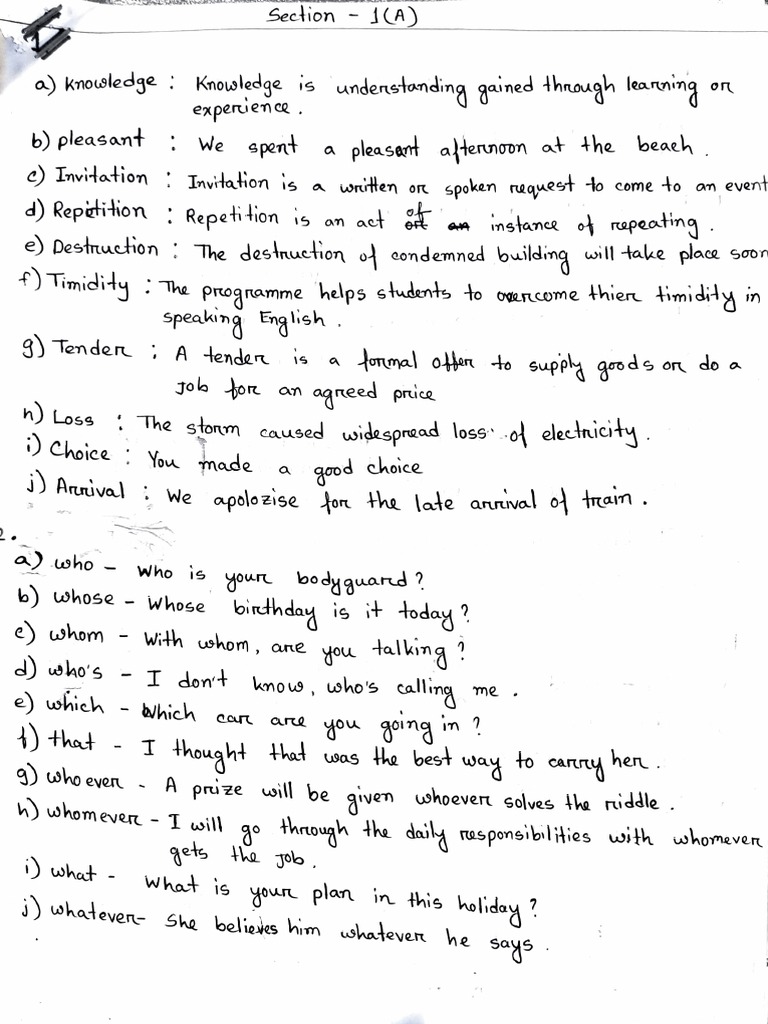 Section - 1(A)
a) Knowledge : Knowledge is understanding gained through learning or
experience.
b) pleasant : We spent a pleasant afternoon at the beach.
c) Invitation : Invitation is a written or spoken request to come to an event
d) Repitition : Repetition is an act of instance of repeating.
e) Destruction : The destruction of condemned building will take place soon
f) Timidity : The programme helps students to overcome thier timidity in
speaking English.
g) Tender : A tender is a formal offer to supply goods or do a
job for an agreed price
h) Loss : The storm caused widespread loss of electricity.
i) Choice : You made a good choice
j) Arrival : We apolozise for the late arrival of train.
2.
a) who - Who is your bodyguard?
b) whose - Whose birthday is it today?
c) whom - With whom, are you talking?
d) who's - I don't know, who's calling me.
e) which - Which car are you going in?
f) that - I thought that was the best way to carry her.
g) whoever - A prize will be given whoever solves the riddle.
h) whomever - I will go through the daily responsibilities with whomever
gets the job.
i) what - What is your plan in this holiday?
j) whatever- She believes him whatever he says.